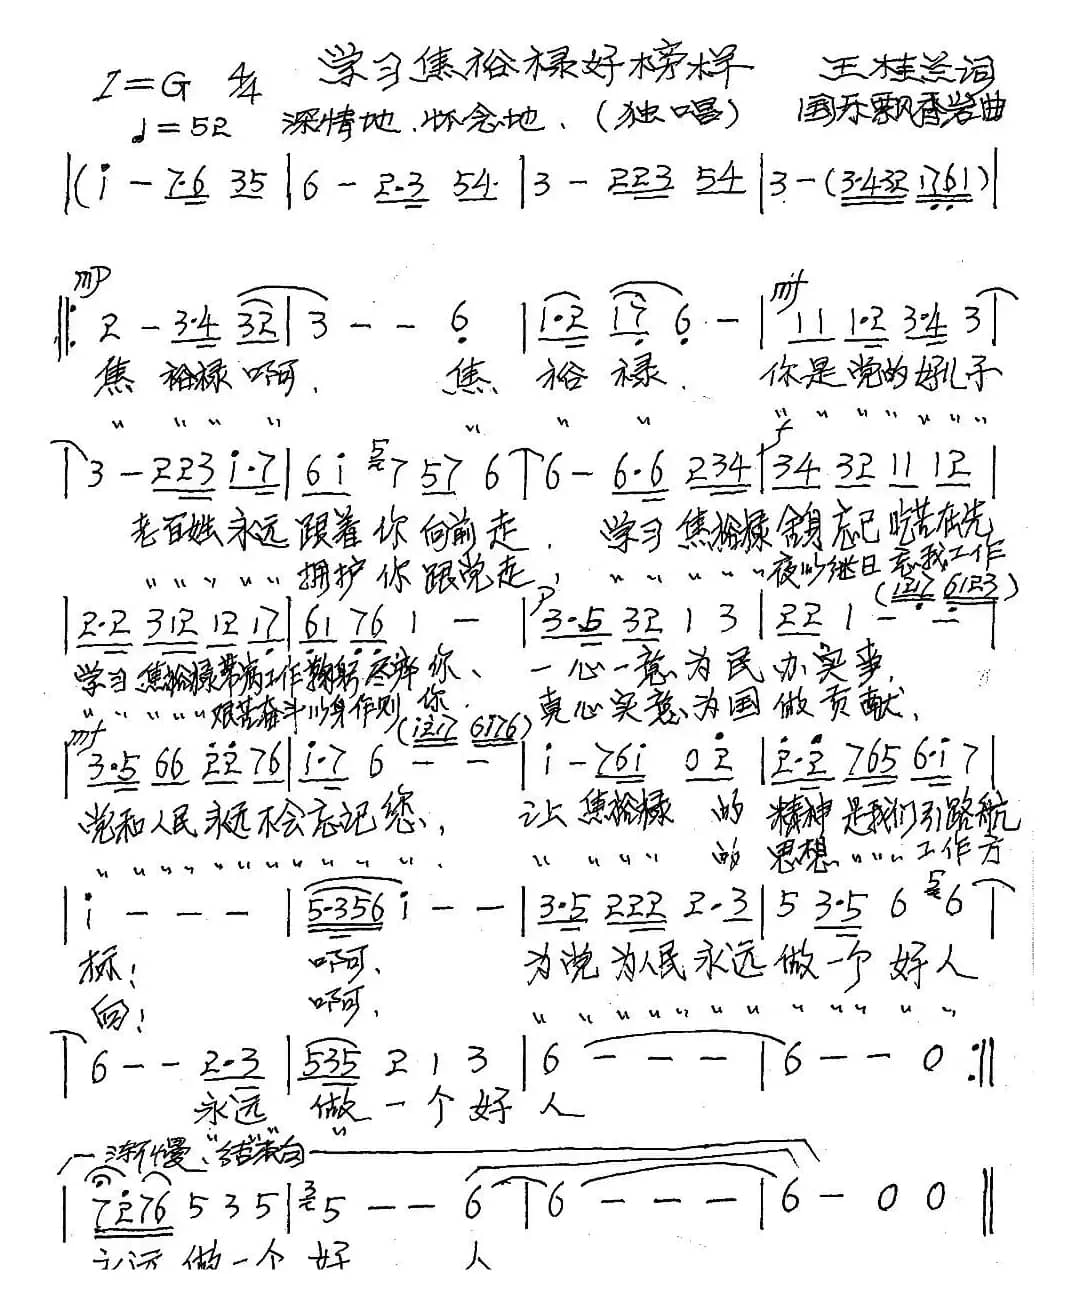 1=G 4/4 学习焦裕禄好榜样 王桂兰词
♩=52 深情地.怀念地.(独唱) 国乐飘香岩曲
|(i - 7·6 35|6 - 2·3 54·|3 - 223 54|3-(3·432 1761)|
mp mf
‖: 2 - 3·4 32|3 - - 6|1·2 17 6·-|11 1·2 3·4 3|
焦 裕禄 啊, 焦 裕 禄. 你是党的好儿子
〃 〃 〃 〃 〃 〃 〃 〃 〃 〃 〃 〃 〃 〃
f
3 - 223 i·7|6i 5 7 57 6|6- 6·6 234|34 32 11 12|
老百姓永远跟着你向前走. 学习焦裕禄舍身忘记吃苦在先
〃 〃 〃 〃 〃 拥护你跟党走, 〃 〃 〃 〃 〃 夜以继日忘我工作
(1217 6123)
p
|2·2 312 12 17|61 76 1 -|3·5 32 1 3|22 1 - -|
学习焦裕禄带病工作鞠躬尽瘁你、 一心一意为民办实事,
〃 〃 〃 〃 〃 艰苦奋斗以身作则你. 真心实意为国做贡献,
mf (i217 6176)
|3·5 66 22 76|i·7 6 - -|i - 76i 02|2·2 765 6·i 7|
党和人民永远不会忘记您, 让焦裕禄的精神是我们引路航
〃 〃 〃 〃 〃 〃 〃 〃 〃 〃. 〃 〃 〃 〃 的思想〃 〃 〃 工作方
|i - - -|5·356 i - -|3·5 222 2·3|5 3·5 6 5 6|
标; 啊, 为党为人民永远做一个好人
向; 啊, 〃 〃 〃 〃 〃 〃 〃 〃 〃 〃 〃 〃
|6 - - 2·3|535 2 1 3|6 - - -|6 - - 0 :‖
永远 做一个好人
〃 〃 〃
渐慢、结束句
|7276 5 3 5|3 5 - - 6|6 - - -|6 - 0 0‖
永远做一个好 人